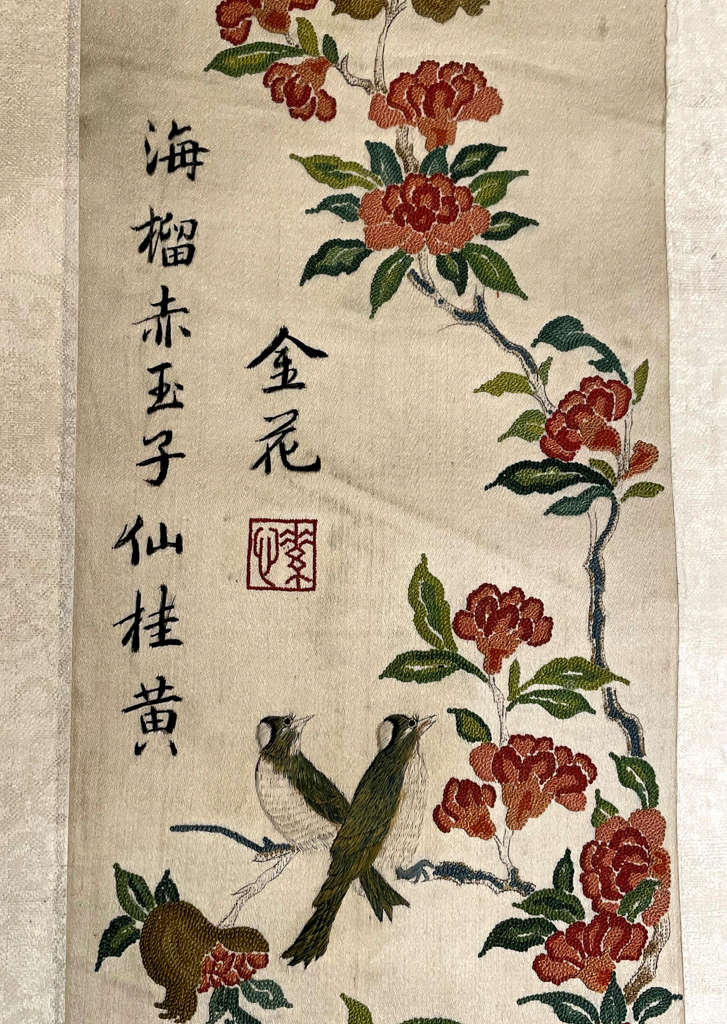 海榴赤玉子仙桂黄
金花
素心